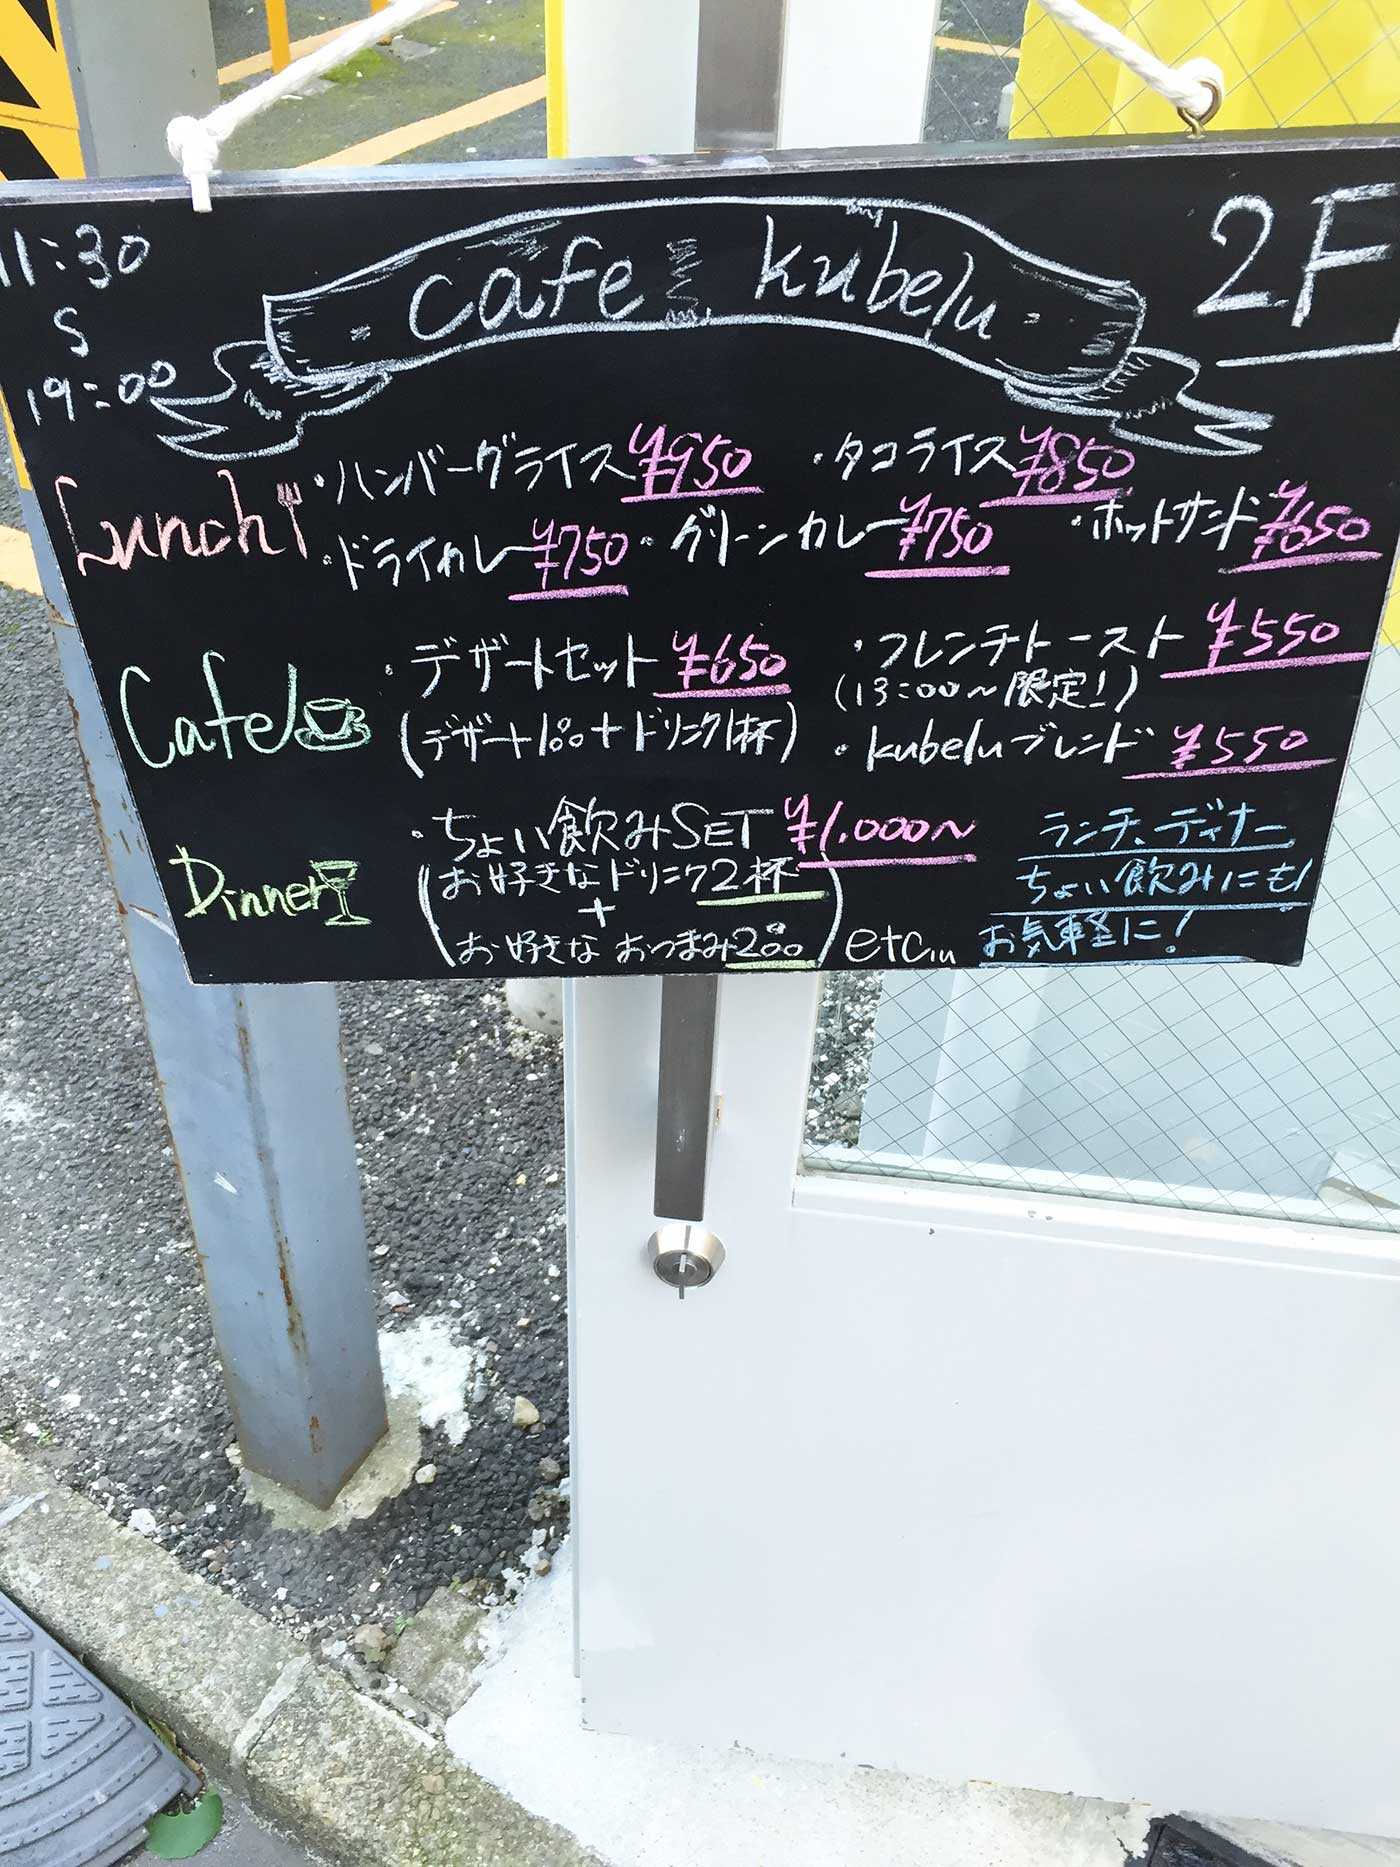 11:30
S
19:00
cafe kubelu
2F
Lunch
・ハンバーグライス ¥950
・タコライス ¥850
・ドライカレー ¥750
・グリーンカレー ¥750
・ホットサンド ¥650
Cafe
・デザートセット ¥650
(デザート1品+ドリンク1杯)
・フレンチトースト ¥550
(13:00〜限定!)
・kubeluブレンド ¥550
Dinner
・ちょい飲みSET ¥1,000〜
(お好きなドリンク2杯
+
お好きなおつまみ2品) etc...
ランチ、ディナー
ちょい飲みにも!
お気軽に!